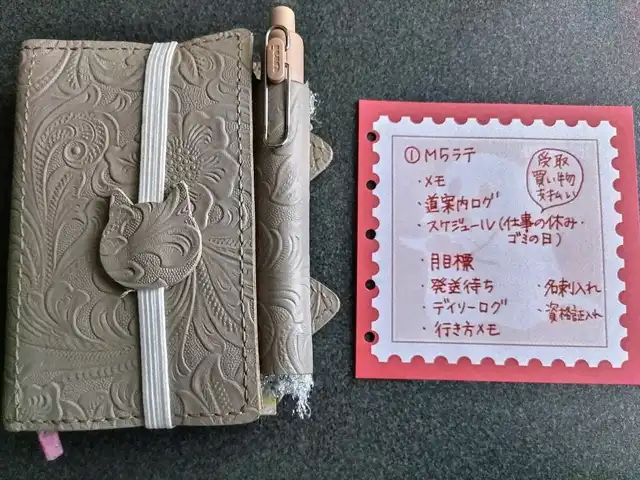 ① M5ラテ
受取
買い物
支払い
・メモ
・道案内ログ
・スケジュール(仕事の休み・
ゴミの日)
・月目標
・発送待ち
・名刺入れ
・デイリーログ
・資格証入れ
・行き方メモ